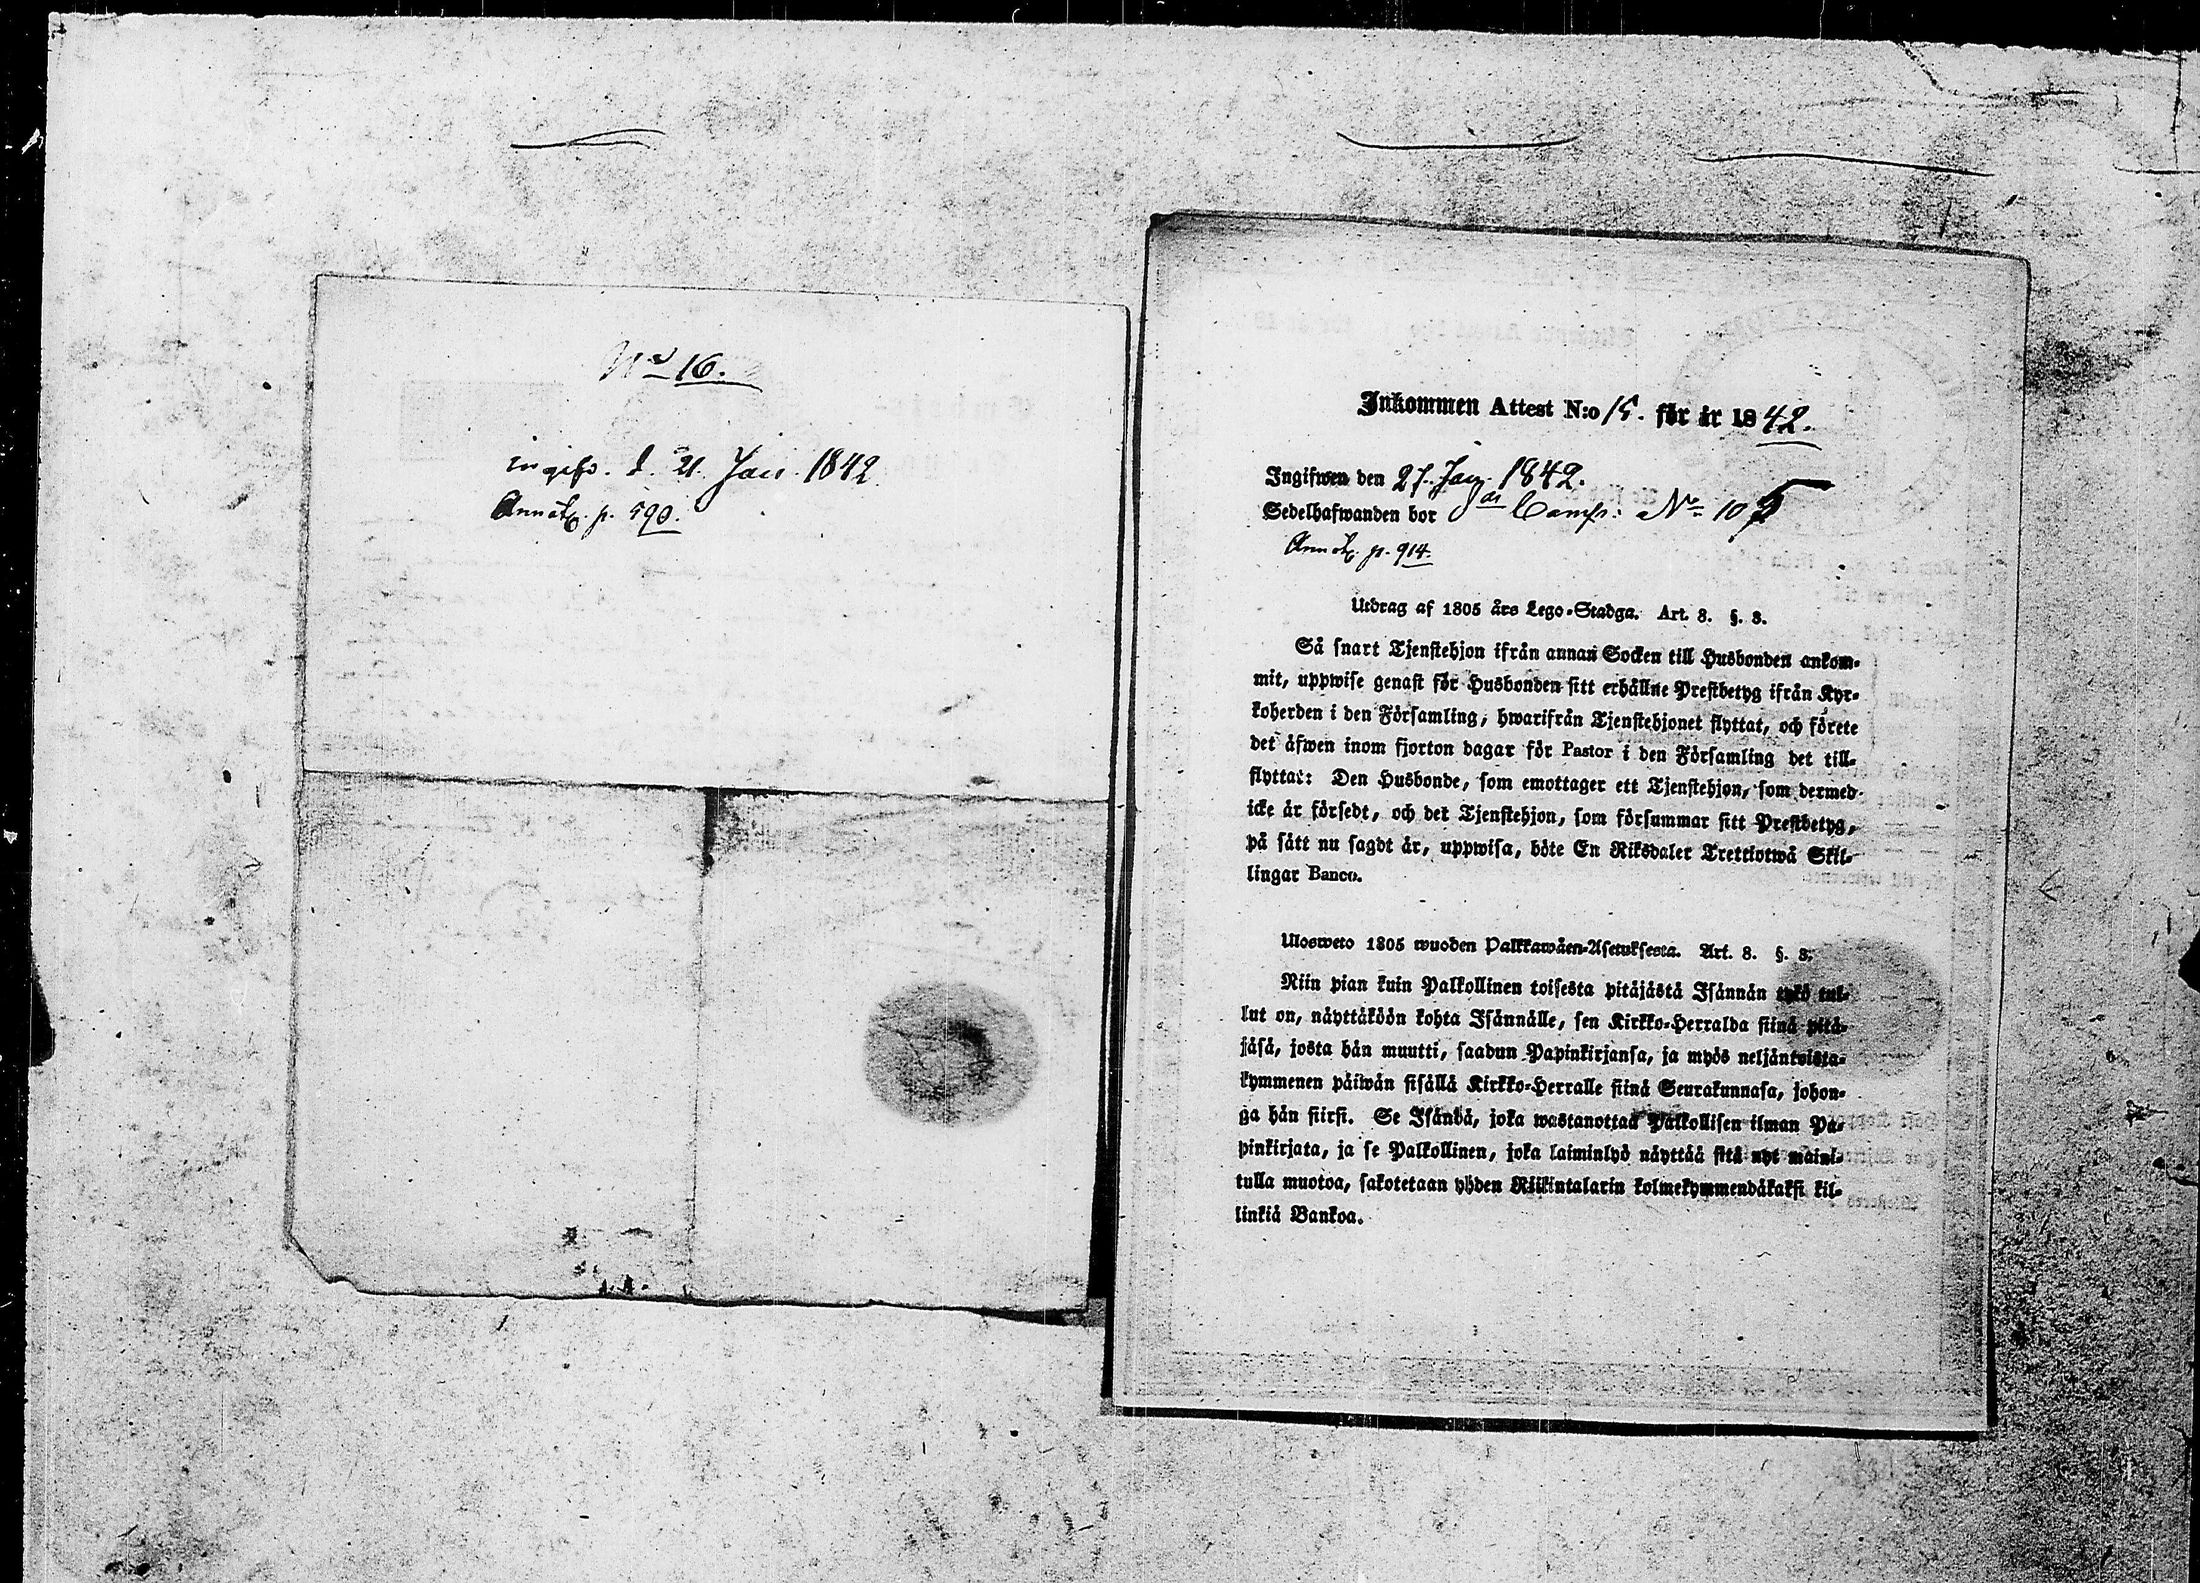 No 16.
ingifv. d. 21. Jan. 1842
Annot. p. 590.
Inkommen Attest N:o 15. för år 1842.
Ingifwen den 27. Jan. 1842.
Sedelhafwanden bor Comp: No 10
Annot. p. 914.
Utdrag af 1805 års Lego-Stadga. Art. 8. §. 8.
Så snart Tjenstehjon ifrån annan Socken till Husbonden ankom-
mit, uppwise genast för Husbonden sitt erhållne Prestbetyg ifrån Kyr-
koherden i den Församling, hwarifrån Tjenstehjonet flyttat, och förete
det äfwen inom fjorton dagar för Pastor i den Församling det till-
flyttat: Den Husbonde, som emottager ett Tjenstehjon, som dermed
icke är försedt, och det Tjenstehjon, som försummar sitt Prestbetyg,
på sätt nu sagdt är, uppwisa, böte En Riksdaler Trettiotwå Skil-
lingar Banco.
Ulosweto 1805 wuoden Palkkawäen-Asetuksesta. Art. 8. §. 8.
Niin pian kuin Palkollinen toisesta pitäjästä Isännän tykö tul-
lut on, näyttäköön kohta Isännälle, sen Kirkko-Herralda siinä pitä-
jäsä, josta hän muutti, saadun Papinkirjansa, ja myös neljäntoista-
kymmenen päiwän sisällä Kirkko-Herralle siinä Seurakunnasa, johon-
ga hän siirsi. Se Isändä, joka wastanottaa Palkollisen ilman Pa-
pinkirjata, ja se Palkollinen, joka laiminlyö näyttää sitä nyt maini-
tulla muotoa, sakotetaan yhden Riikintalarin kolmekymmendäkaksi kil-
linkiä Bankoa.